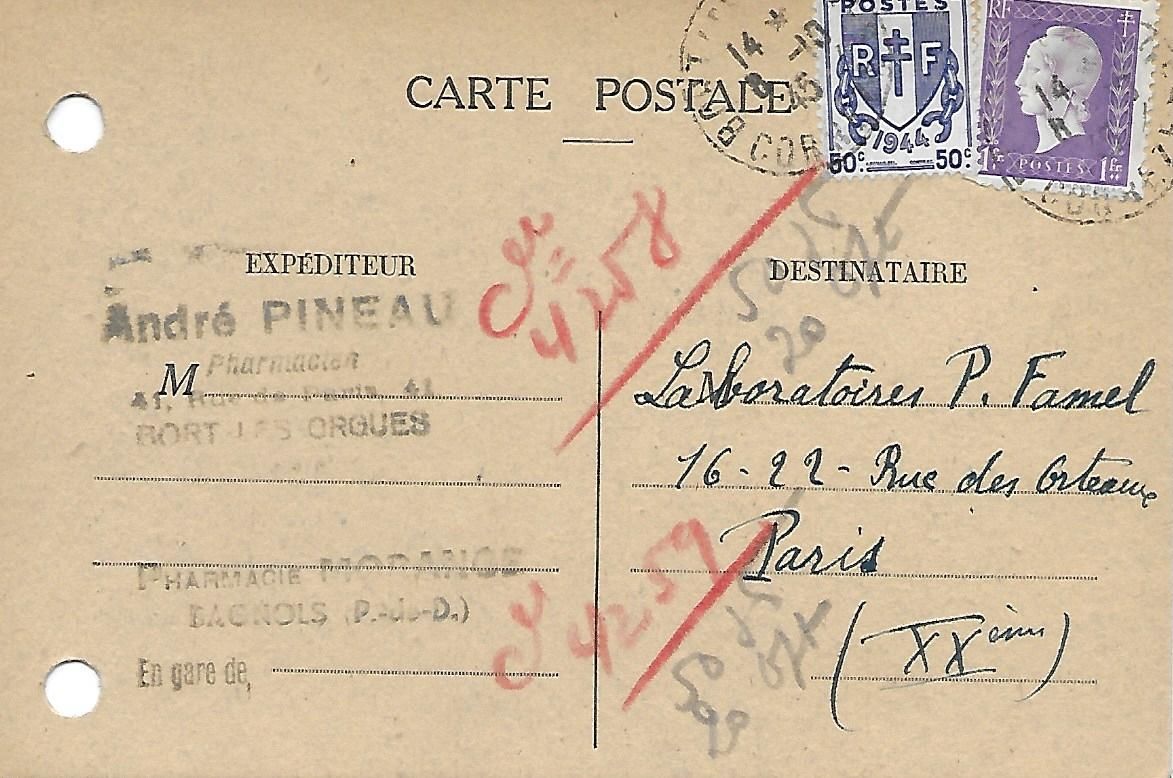 CARTE POSTALE
POSTES
R F
1944
50c 50c
RF
1Fr POSTES 1Fr
14
14
EXPÉDITEUR
André PINEAU
Pharmacien
M
41, Rue de Paris, 41
BORT-LES-ORGUES
PHARMACIE MORANGE
BAGNOLS (P.-de-D.)
En gare de
4258
4259
50
20
50
DESTINATAIRE
Laboratoires P. Famel
16-22- Rue des Orteaux
Paris
(XXème)